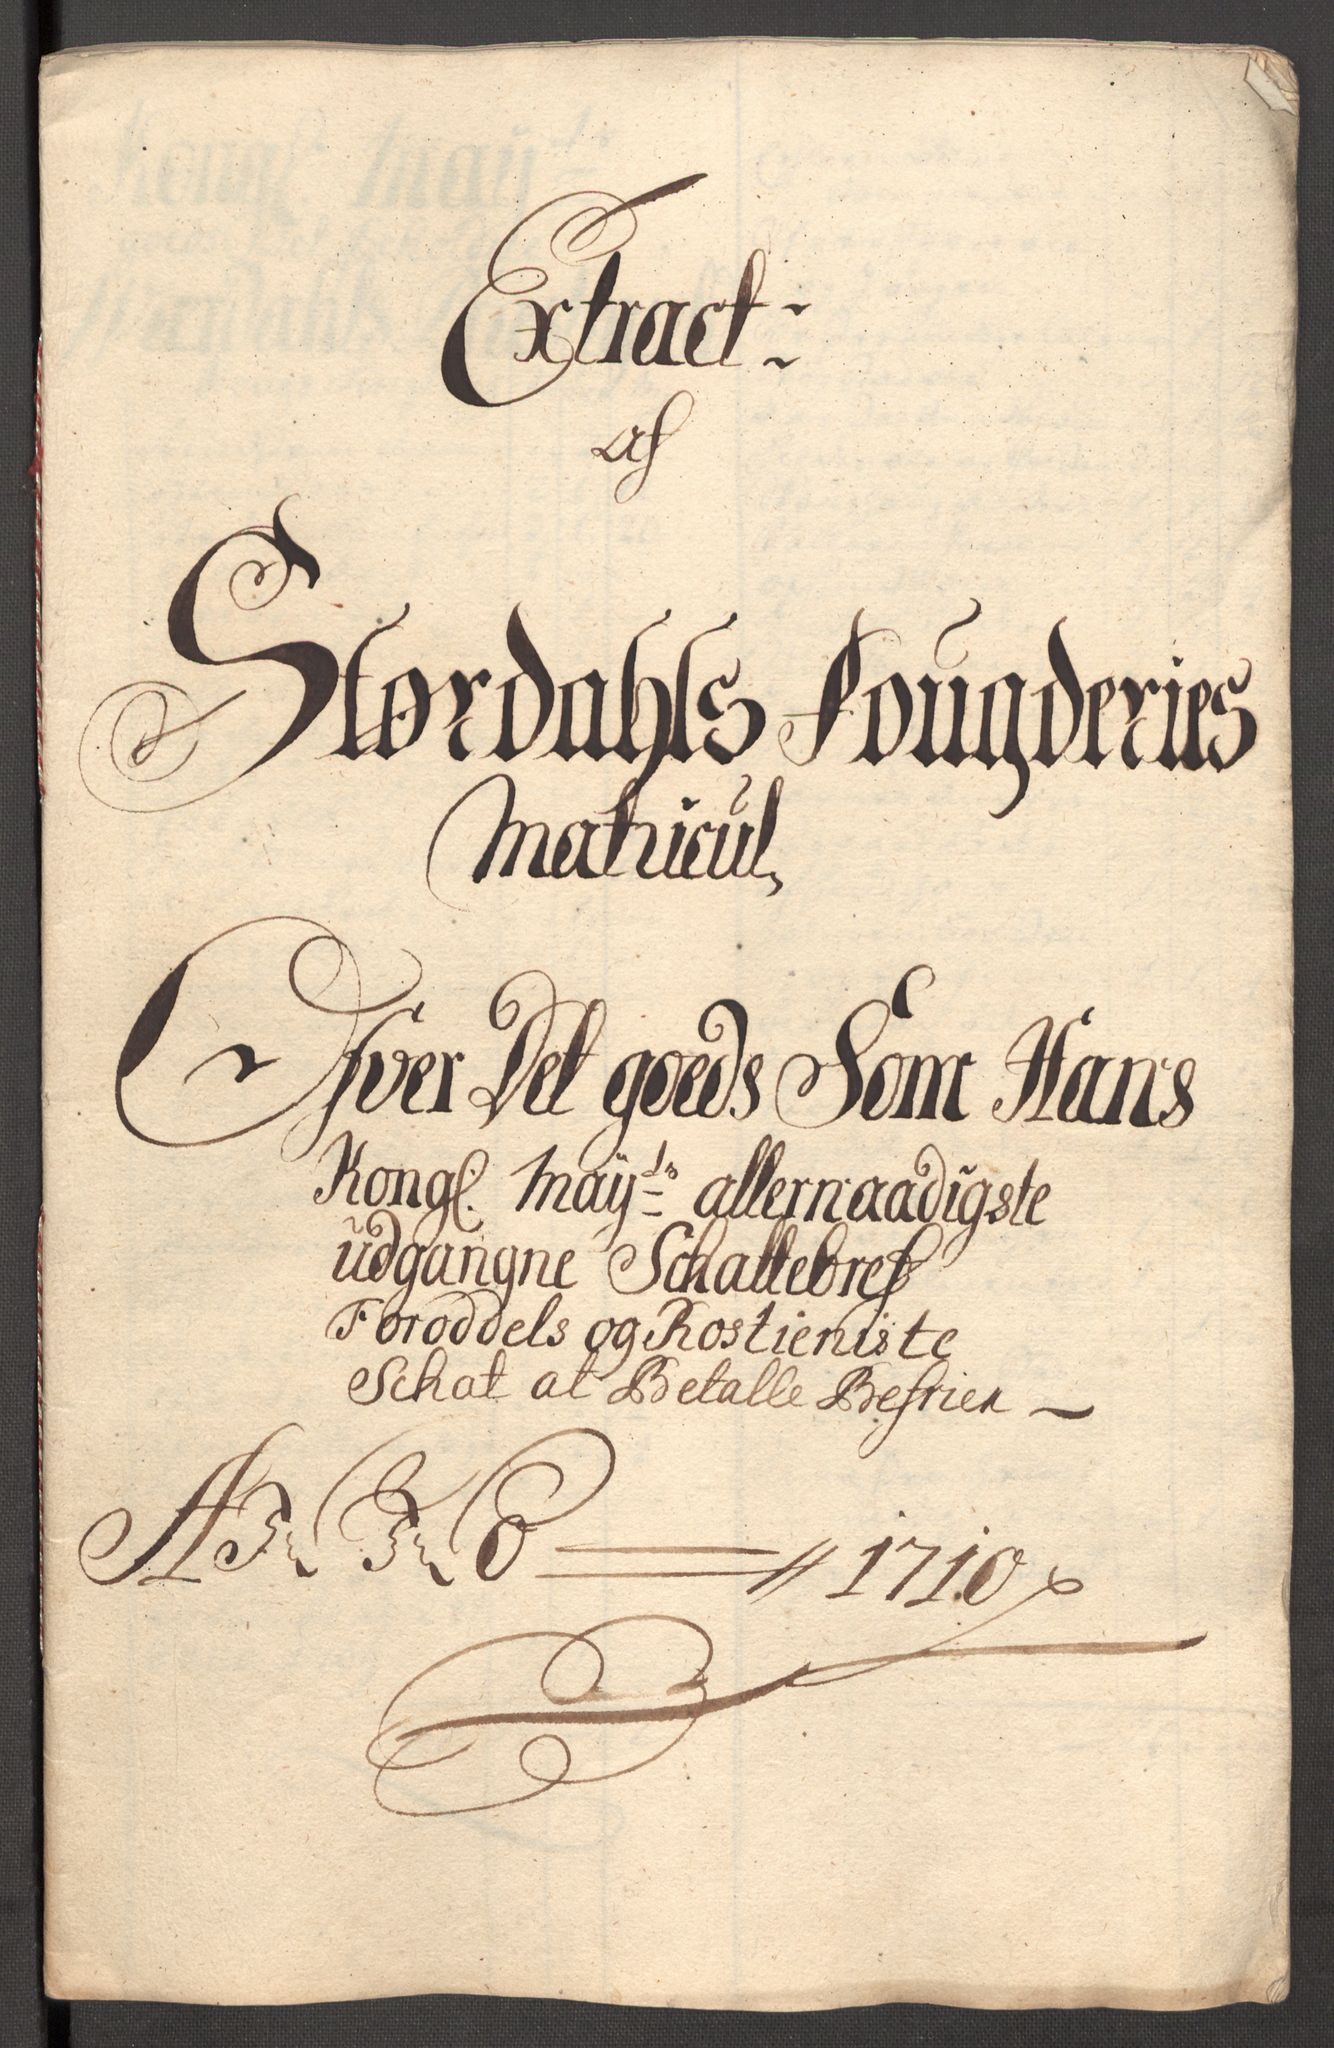 Extract:
af
Størdahls Fougderies
Matricul,
Ofver Det goeds Som Hans
Kongl. Mayts allernaadigste
udgangne Schattebref
Foroddels og Rostieniste
Schat at Betalle Befrier
ANNO 1710